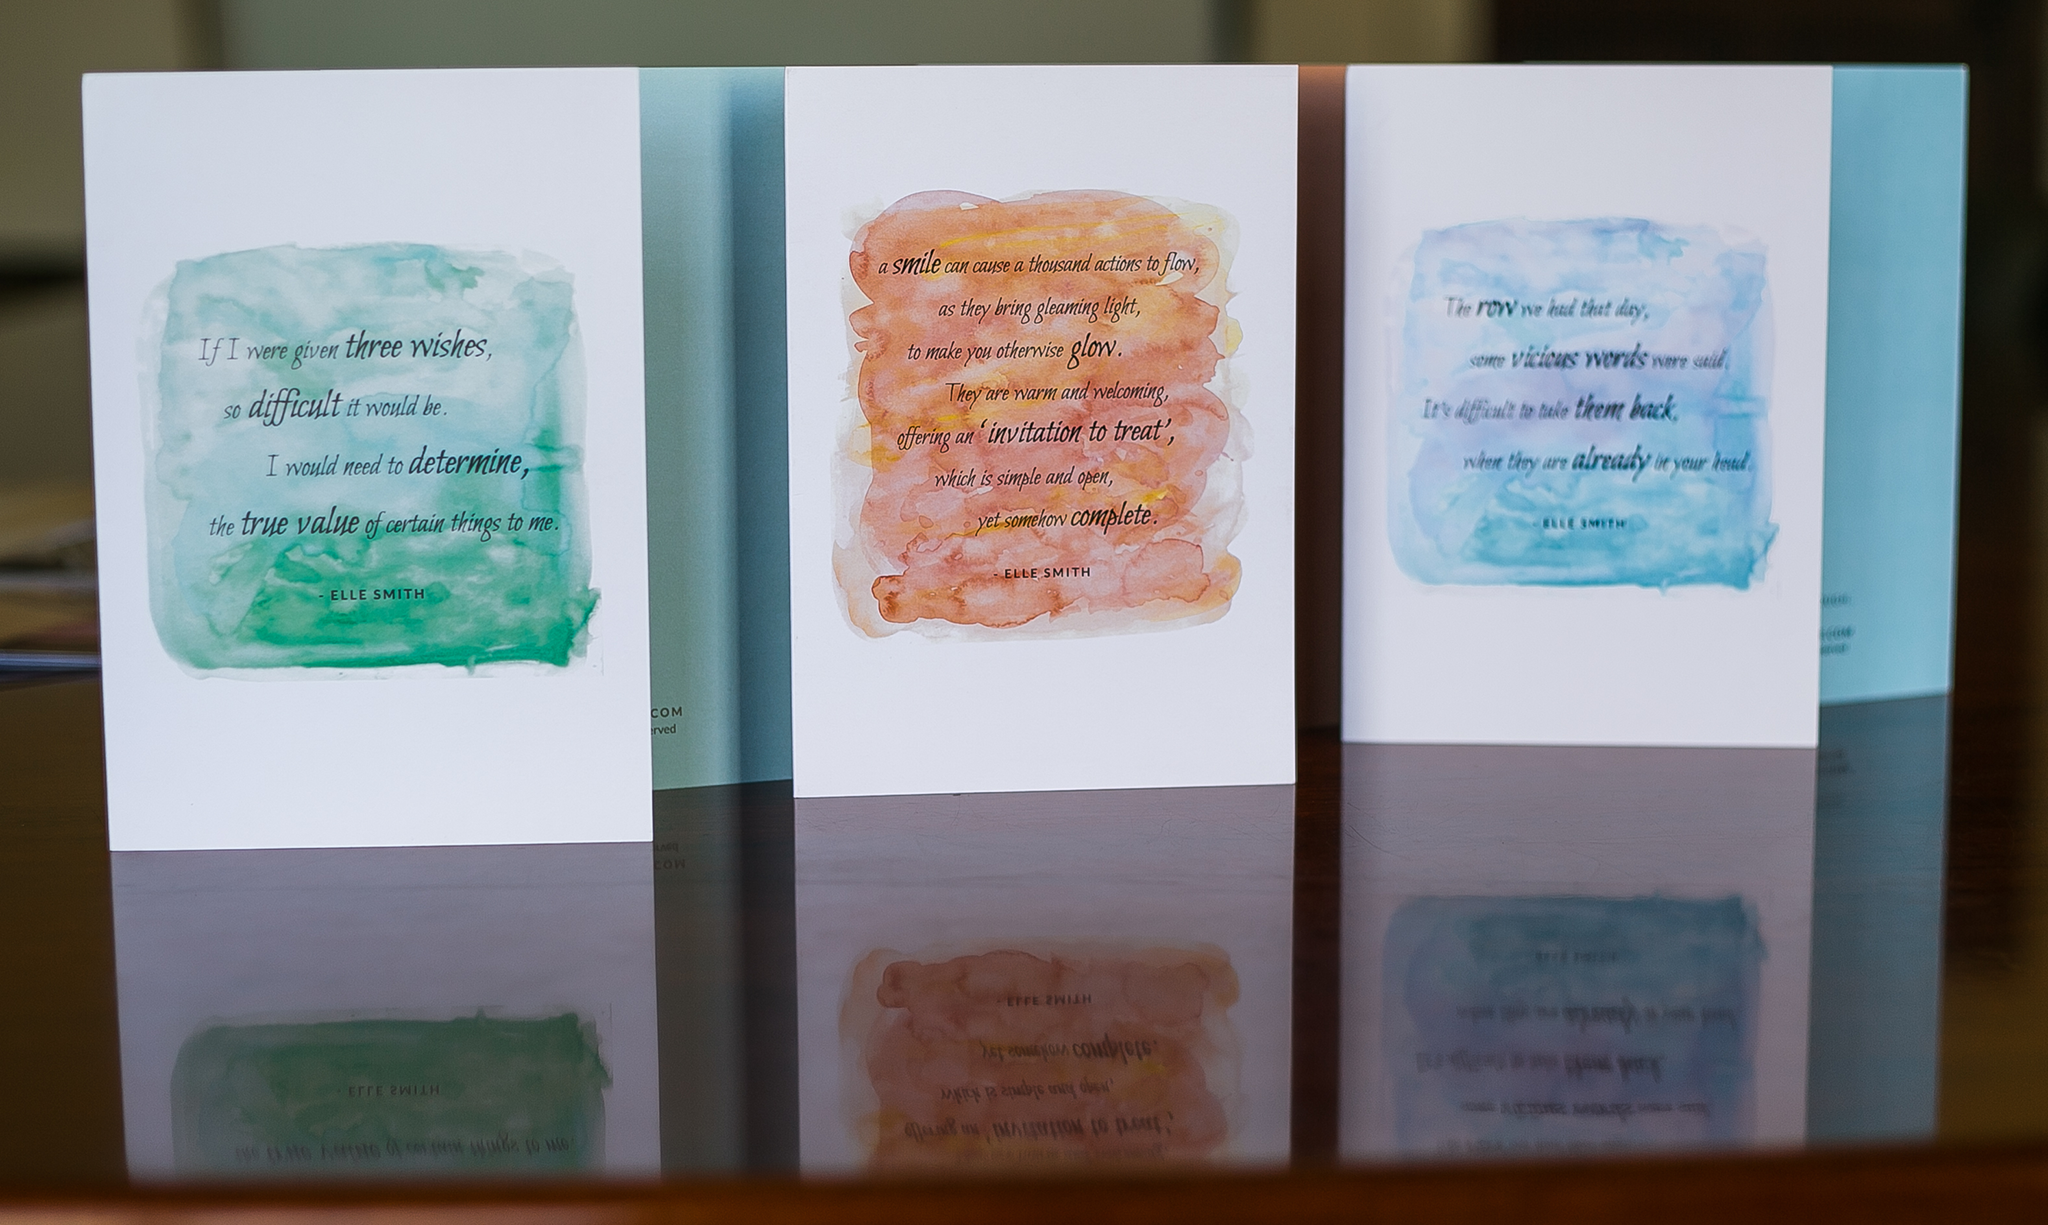 If I were given three wishes,
so difficult it would be.
I would need to determine,
the true value of certain things to me.
- ELLE SMITH
.COM
erved
a smile can cause a thousand actions to flow,
as they bring gleaming light,
to make you otherwise glow.
They are warm and welcoming,
offering an ‘invitation to treat’,
which is simple and open,
yet somehow complete.
- ELLE SMITH
The row we had that day,
some vicious words were said.
It's difficult to take them back,
when they are already in your head.
- ELLE SMITH
.COM